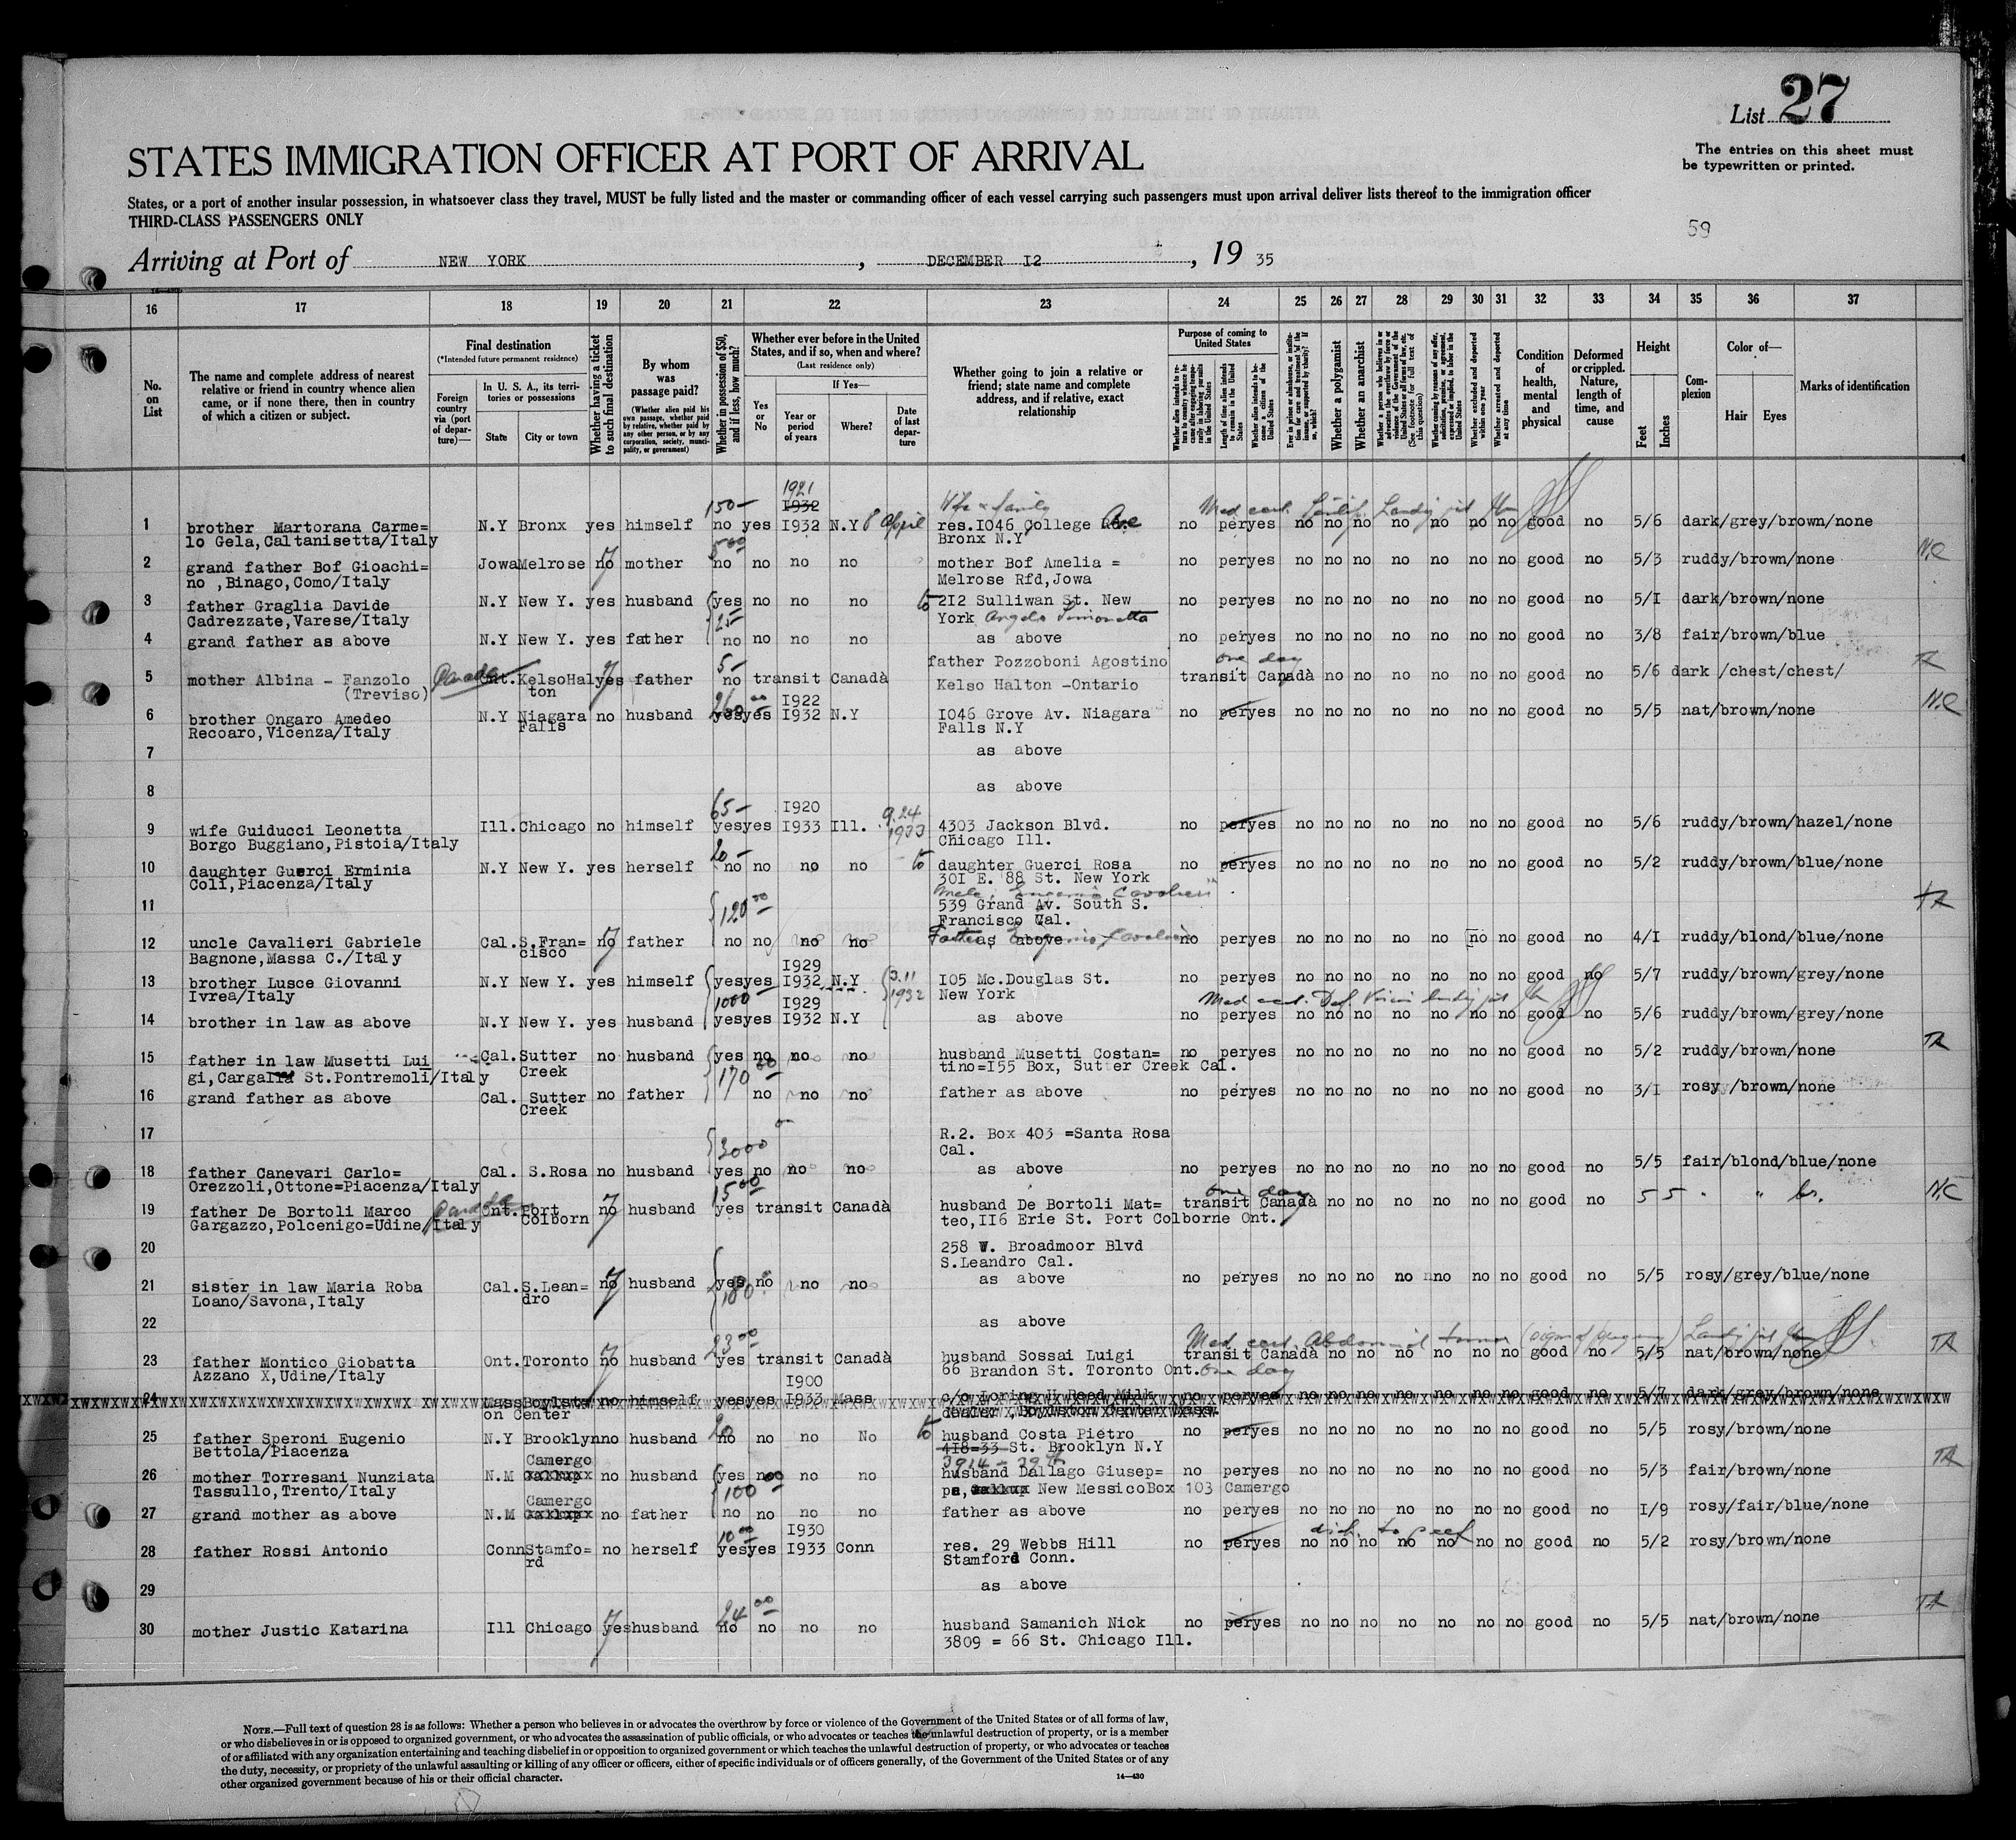 List 27
The entries on this sheet must
be typewritten or printed.
STATES IMMIGRATION OFFICER AT PORT OF ARRIVAL
States, or a port of another insular possession, in whatsoever class they travel, MUST be fully listed and the master or commanding officer of each vessel carrying such passengers must upon arrival deliver lists thereof to the immigration officer
THIRD-CLASS PASSENGERS ONLY
59
Arriving at Port of NEW YORK , DECEMBER I2 , 19 35
16 17 18 19 20 21 22 23 24 25 26 27 28 29 30 31 32 33 34 35 36 37
No. on List
The name and complete address of nearest relative or friend in country whence alien came, or if none there, then in country of which a citizen or subject.
Final destination
(*Intended future permanent residence)
Foreign country via (port of departure)—
In U. S. A., its territories or possessions
State City or town
Whether having a ticket to such final destination
By whom was passage paid?
(Whether alien paid his own passage, whether paid by relative, whether paid by any other person, or by any corporation, society, municipality, or government)
Whether in possession of $50, and if less, how much?
Whether ever before in the United States, and if so, when and where?
(Last residence only)
If Yes—
Yes or No
Year or period of years
Where?
Date of last departure
Whether going to join a relative or friend; state name and complete address, and if relative, exact relationship
Purpose of coming to United States
Whether a polygamist
Whether an anarchist
Condition of health, mental and physical
Deformed or crippled. Nature, length of time, and cause
Height
Feet Inches
Complexion
Color of—
Hair Eyes
Marks of identification
150— 1921 I932 Wife & family Med cert.
1 brother Martorana Carme= N.Y Bronx yes himself no yes I932 N.Y 8 April res.I046 College Ave no peryes no no no no no no no good no 5/6 dark/grey/brown/none
lo Gela,Caltanisetta/Italy Bronx N.Y
2 grand father Bof Gioachi= JowaMelrose no mother no no no no mother Bof Amelia = no peryes no no no no no no no good no 5/3 ruddy/brown/none N.C
no ,Binago,Como/Italy Melrose Rfd,Jowa
3 father Graglia Davide N.Y New Y. yes husband yes no no no to 2I2 Sulliwan St. New no peryes no no no no no no no good no 5/I dark/brown/none
Cadrezzate,Varese/Italy 25— York Angelo Simonetta
4 grand father as above N.Y New Y. yes father no no no no as above no peryes no no no no no no no good no 3/8 fair/brown/blue
5— father Pozzoboni Agostino one day
5 mother Albina - Fanzolo Canada Ont.KelsoHalyes father no transit Canadà Kelso Halton -Ontario transit Canadà no no no no no no no good no 5/6 dark /chest/chest/
(Treviso) ton
260 00 I922
6 brother Ongaro Amedeo N.Y Niagara no husband yesyes I932 N.Y I046 Grove Av. Niagara no peryes no no no no no no no good no 5/5 nat/brown/none N.C
Recoaro,Vicenza/Italy Falls Falls N.Y
7 as above
8 as above
65— I920 9.24
9 wife Guiducci Leonetta Ill.Chicago no himself yesyes I933 Ill. 1933 4303 Jackson Blvd. no peryes no no no no no no no good no 5/6 ruddy/brown/hazel/none
Borgo Buggiano,Pistoia/Italy Chicago Ill.
20—
10 daughter Guerci Erminia N.Y New Y. yes herself no no no no to daughter Guerci Rosa no peryes no no no no no no no good no 5/2 ruddy/brown/blue/none
Coli,Piacenza/Italy 30I E. 88 St. New York
11 120 00 539 Grand Av. South S.
Francisco Cal.
12 uncle Cavalieri Gabriele Cal.S.Fran= no father no no no no as above no peryes no no no no no no no good no 4/I ruddy/blond/blue/none
Bagnone,Massa C./Italy cisco
I929
13 brother Lusce Giovanni N.Y New Y. yes himself yesyes I932 N.Y 3.11 I05 Mc.Douglas St. no peryes no no no no no no no good no 5/7 ruddy/brown/grey/none
Ivrea/Italy 1000 I929 1932 New York
14 brother in law as above N.Y New Y. yes husband yesyes I932 N.Y as above no peryes no no no no no no no good no 5/6 ruddy/brown/grey/none
15 father in law Musetti Lui Cal.Sutter no husband yes no no no husband Musetti Costan= no peryes no no no no no no no good no 5/2 ruddy/brown/none
gi,Cargalla St.Pontremoli/Italy Creek 170 00 tino=I55 Box, Sutter Creek Cal.
16 grand father as above Cal. Sutter no father no no no father as above no peryes no no no no no no no good no 3/I rosy/brown/none
Creek
17 3000 R.2. Box 403 =Santa Rosa
Cal.
18 father Canevari Carlo= Cal. S.Rosa no husband yes no no no as above no peryes no no no no no no no good no 5/5 fair/blond/blue/none
Orezzoli,Ottone=Piacenza/Italy one day
19 father De Bortoli Marco Ont.Port no husband yes transit Canadà husband De Bortoli Mat= transit Canadà no no no no no no no good no 5 5 " " br. N.C
Gargazzo,Polcenigo=Udine/Italy Colborn teo,II6 Erie St. Port Colborne Ont.
20 258 W. Broadmoor Blvd
S.Leandro Cal.
21 sister in law Maria Roba Cal.S.Lean= no husband yes no no no as above no peryes no no no no no no no good no 5/5 rosy/grey/blue/none
Loano/Savona,Italy dro 180
22 as above
23 00 Med cert.
23 father Montico Giobatta Ont.Toronto no husband yes transit Canadà husband Sossai Luigi transit Canadà no no no no no no no good no 5/5 nat/brown/none
Azzano X,Udine/Italy 66 Brandon St. Toronto Ont. one day
I900
24 MassBoylsto no himself yesyes I933 Mass c/o Loring H Reed Milk no peryes no no no no no no no good no 5/7 dark/grey/brown/none
on Center dealer ,Boylston Center Mass.
25 father Speroni Eugenio N.Y Brooklynno husband no no no No to husband Costa Pietro no peryes no no no no no no no good no 5/5 rosy/brown/none
Bettola/Piacenza 4I8=33 St. Brooklyn N.Y
Camergo 3914 - 39th
26 mother Torresani Nunziata N.M no husband yes no no no husband Dallago Giusep= no peryes no no no no no no no good no 5/3 fair/brown/none
Tassullo,Trento/Italy 100 pe, New MessicoBox 103 Camergo
Camergo
27 grand mother as above N.M no father no no no no father as above no peryes no no no no no no no good no I/9 rosy/fair/blue/none
10 00 I930
28 father Rossi Antonio ConnStamfo= no herself yesyes I933 Conn res. 29 Webbs Hill no peryes no no no no no no no good no 5/2 rosy/brown/none
rd Stamford Conn.
29 as above
24 00
30 mother Justic Katarina Ill Chicago yeshusband no no no no husband Samanich Nick no peryes no no no no no no no good no 5/5 nat/brown/none
3809 = 66 St. Chicago Ill.
NOTE.—Full text of question 28 is as follows: Whether a person who believes in or advocates the overthrow by force or violence of the Government of the United States or of all forms of law,
or who disbelieves in or is opposed to organized government, or who advocates the assassination of public officials, or who advocates or teaches the unlawful destruction of property, or is a member
of or affiliated with any organization entertaining and teaching disbelief in or opposition to organized government or which teaches the unlawful destruction of property, or who advocates or teaches
the duty, necessity, or propriety of the unlawful assaulting or killing of any officer or officers, either of specific individuals or of officers generally, of the Government of the United States or of any
other organized government because of his or their official character.
14—430